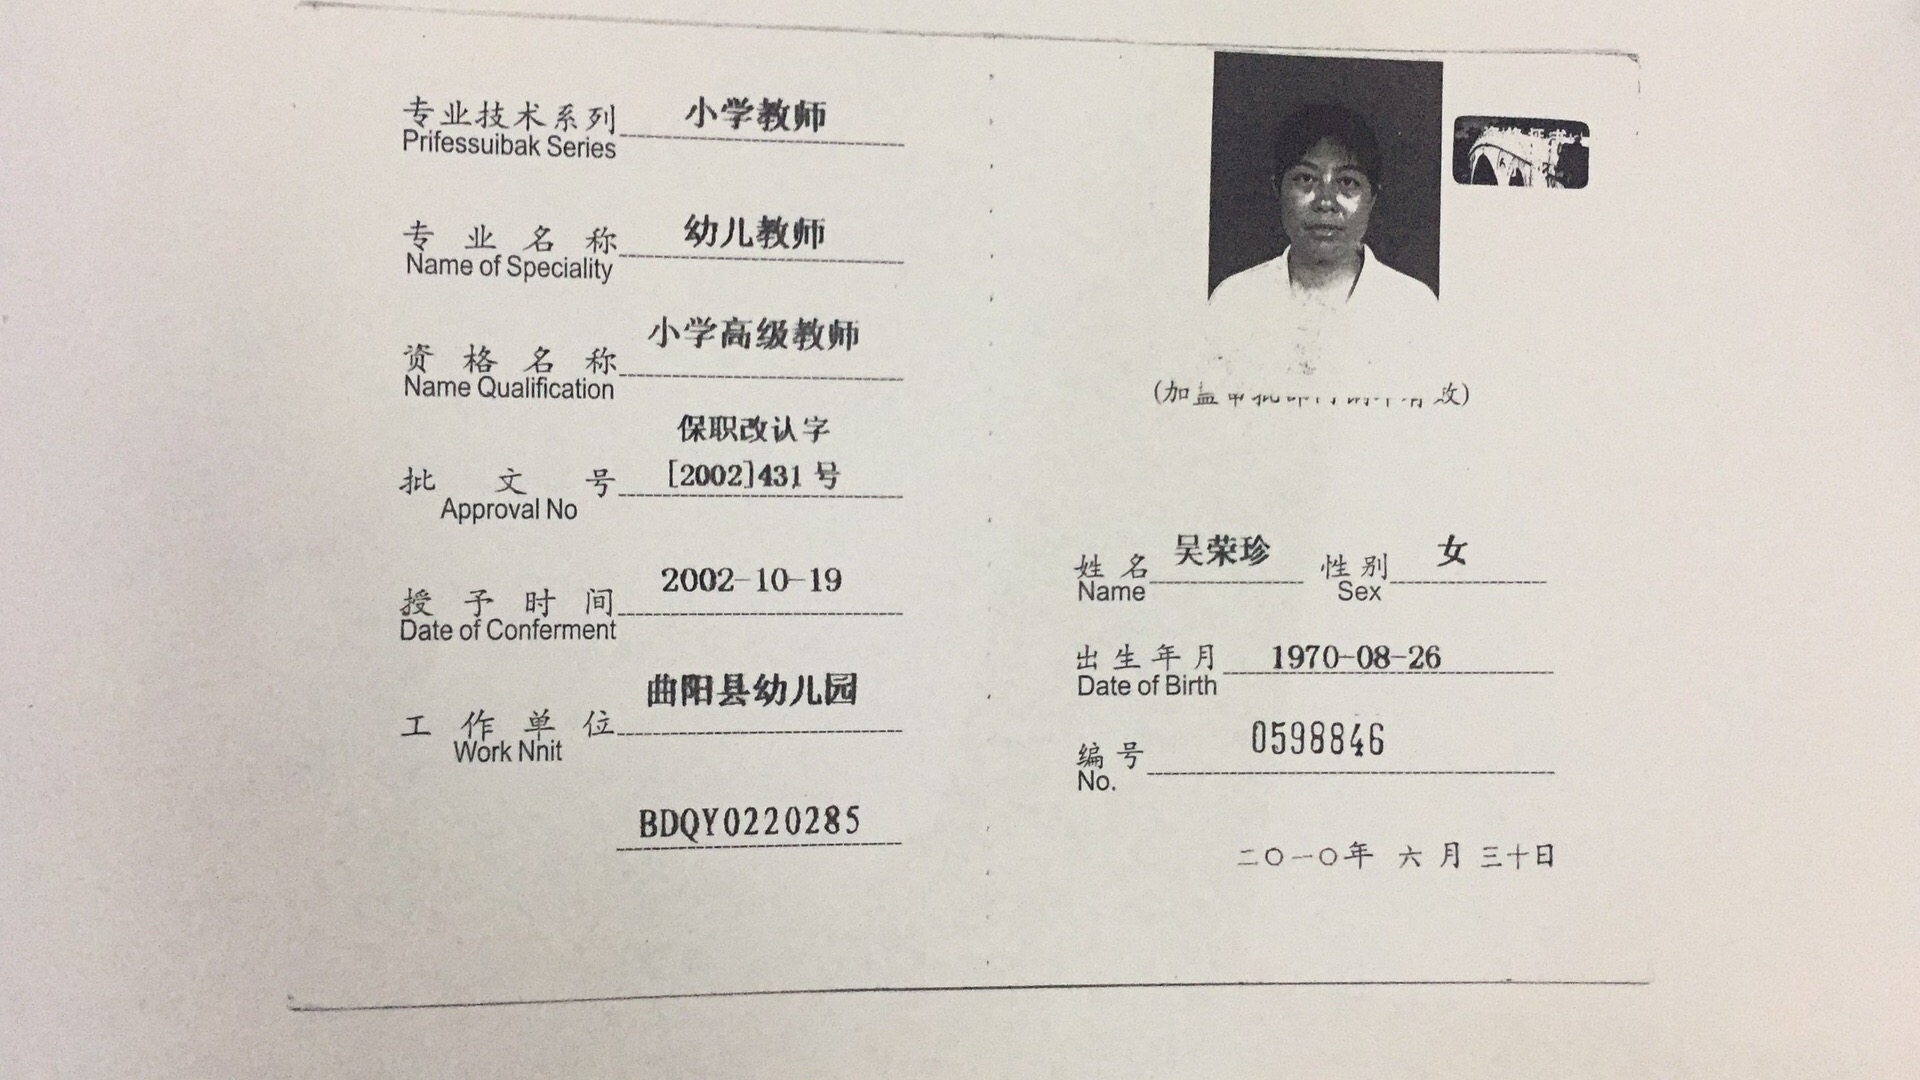 专业技术系列 小学教师
Prifessuibak Series
专业名称 幼儿教师
Name of Speciality
小学高级教师
资格名称
Name Qualification
保职改认字
批文号 [2002]431号
Approval No
2002-10-19
授予时间
Date of Conferment
曲阳县幼儿园
工作单位
Work Nnit
BDQY0220285
(加盖
姓名 吴荣珍 性别 女
Name Sex
出生年月 1970-08-26
Date of Birth
编号 0598846
No.
二〇一〇年 六月三十日